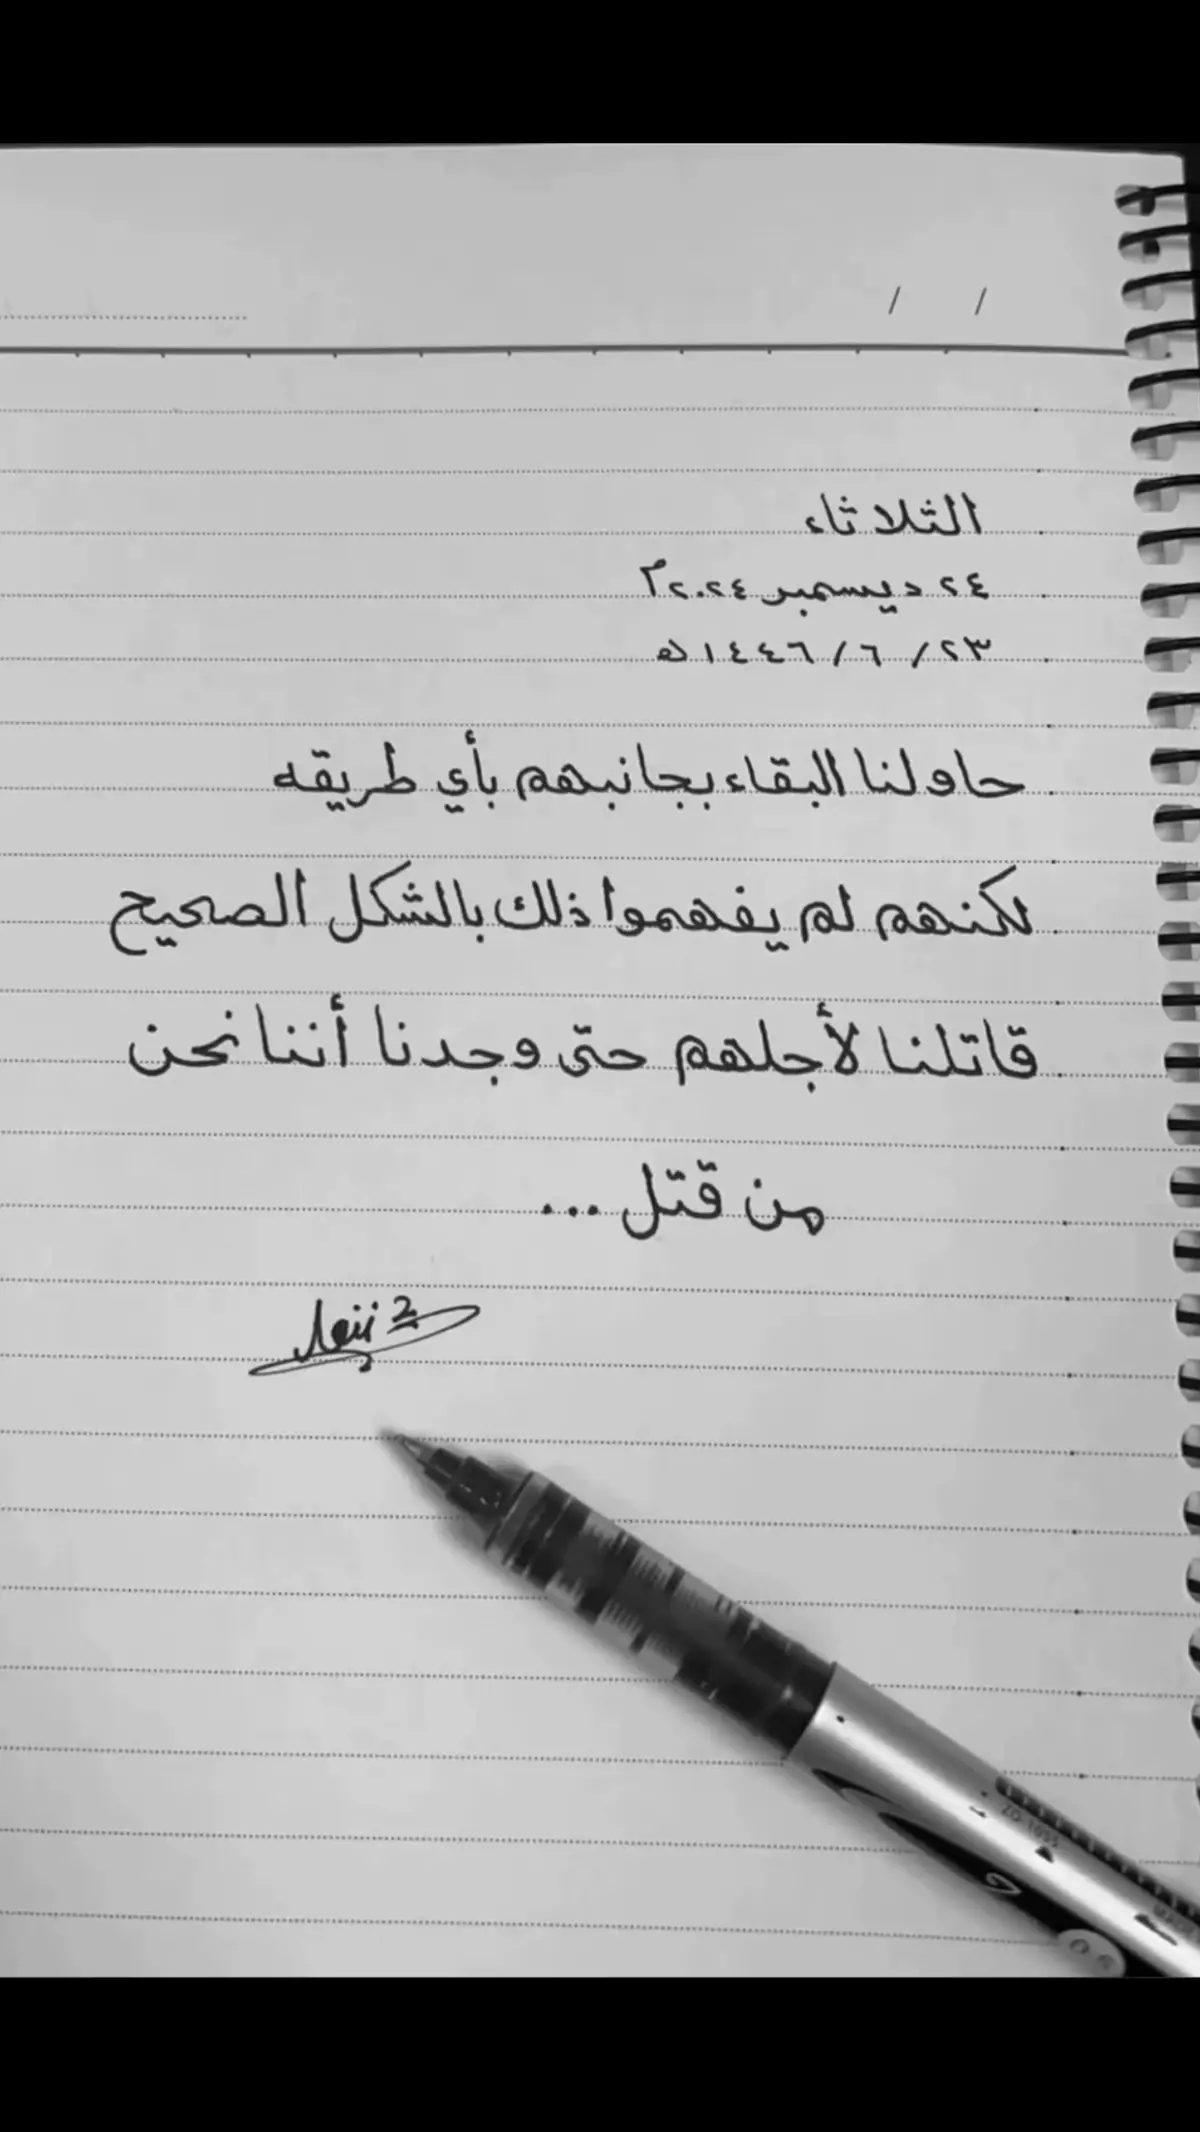 / /
الثلاثاء
٢٤ ديسمبر ٢٠٢٤م
٢٣/ ٦ /١٤٤٦ه
حاولنا البقاء بجانبهم بأي طريقه
لكنهم لم يفهموا ذلك بالشكل الصحيح
قاتلنا لأجلهم حتى وجدنا أننا نحن
من قتل ...
0.5